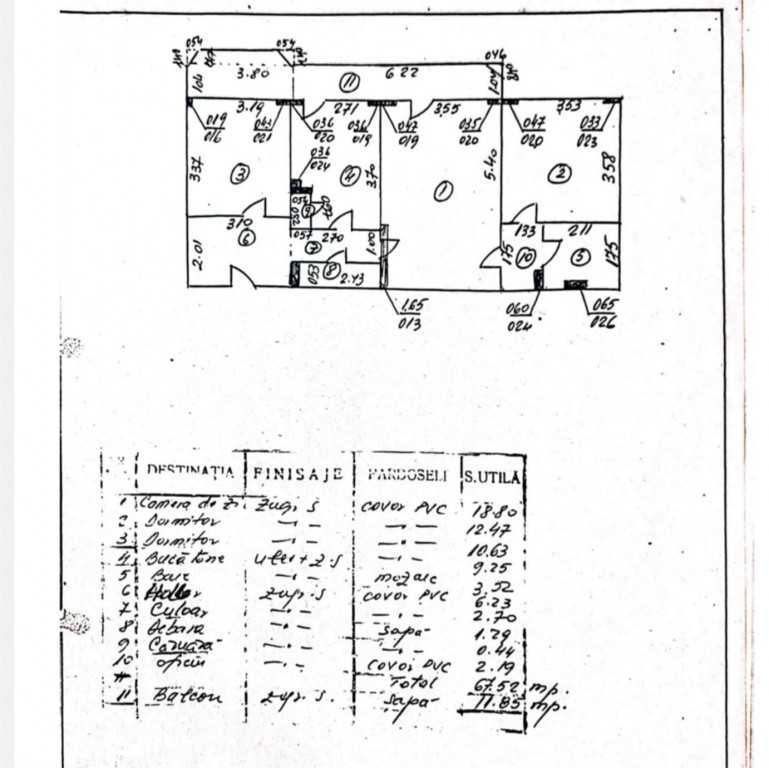 054 054 046
1.04 3.80 11 6 22 1.04
3.19 271 355 353
019 043 036 036 047 035 047 033
016 021 20 019 019 020 020 023
036
024
337 3 4 3.70 1 5.40 2 358
054 9
310 057 270 133 211
6 7 1.00 175 10 5 175
2.01 053 8 2.43
1.65 060 065
013 024 026
DESTINAȚIA FINISAJE PARDOSELI S.UTILĂ
1 Camera de zi zugr. S covor PVC 18.80
2 Dormitor —"— —"— 12.47
3 Dormitor —"— —"— 10.63
4 Bucătărie ulei + z.s —"— 9.25
5 Baie —"— mozaic 3,52
6 Holl zugr. S covor PVC 6.23
7 Culoar —"— —"— 2.70
8 Debara —"— sapa 1.29
9 Cămară —"— —"— 0.44
10 oficiu —"— covor PVC 2.19
Total 67.52 mp.
11 Balcon zugr. s. sapa 11.85 mp.